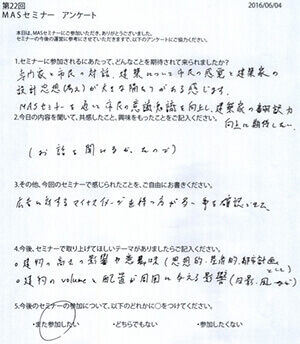 第22回
2016/06/04
MASセミナー アンケート
本日は、MASセミナーにご参加いただき、ありがとうございました。
セミナーの今後の運営に参考にさせていただきますので、以下のアンケートにご協力ください。
1.セミナーに参加されるにあたって、どんなことを期待されて来られましたか?
専門家と市民の対話、建築について市民の感覚と建築家の
設計思想(考え)が大きな開きがある感じます。
MASセミナーを通じ市民の意識知識を向上し、建築家の
2.今日の内容を聞いて、共感したこと、興味をもったことをご記入ください。
向上に期待したい。
(お話を聞い
3.その他、今回のセミナーで感じられたことを、ご自由にお書きください。
広告に対するマイナスイメージを持つ方が多い事を確認
4.今後、セミナーで取り上げてほしいテーマがありましたらご記入ください。
○建物の高さの影響や意義は(思想的・景
○建物のvolumeと配置が周囲に与える影響(日影、風など)
5.今後のセミナーの参加について、以下のどれかに○をつけてください。
・また参加したい ・どちらでもない ・参加したくない